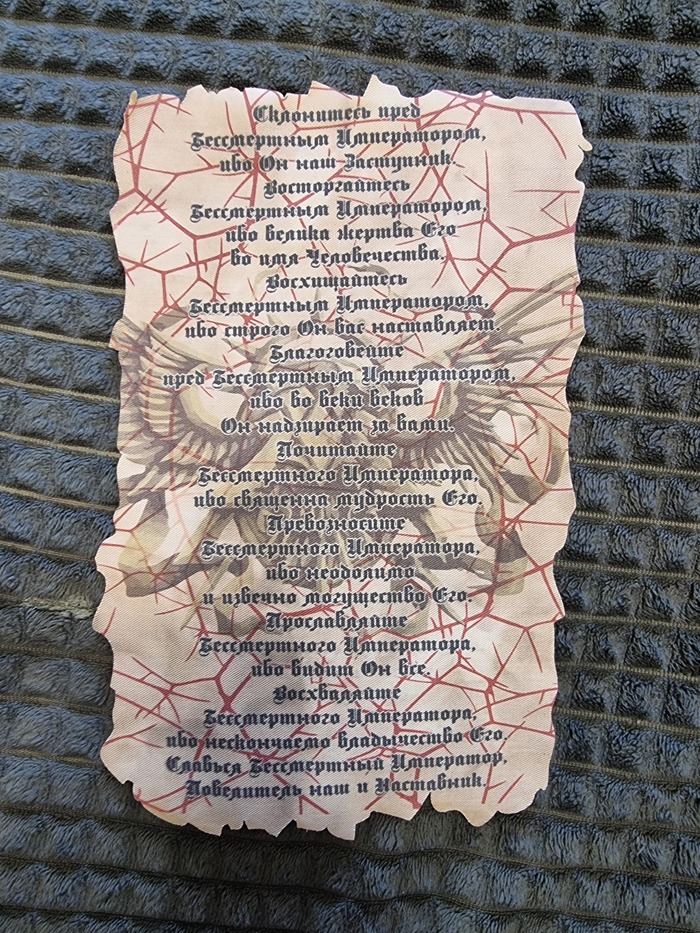 Склонитесь пред
Бессмертным Императором,
ибо Он наш Заступник.
Восторгайтесь
Бессмертным Императором,
ибо велика жертва Его
во имя Человечества.
Восхищайтесь
Бессмертным Императором,
ибо строго Он вас наставляет.
Благоговейте
пред Бессмертным Императором,
ибо во веки веков
Он надзирает за вами.
Почитайте
Бессмертного Императора,
ибо священна мудрость Его.
Превозносите
Бессмертного Императора,
ибо неодолимо
и извечно могущество Его.
Прославляйте
Бессмертного Императора,
ибо видит Он все.
Восхваляйте
Бессмертного Императора,
ибо нескончаемо владычество Его.
Славься Бессмертный Император,
Повелитель наш и Наставник.